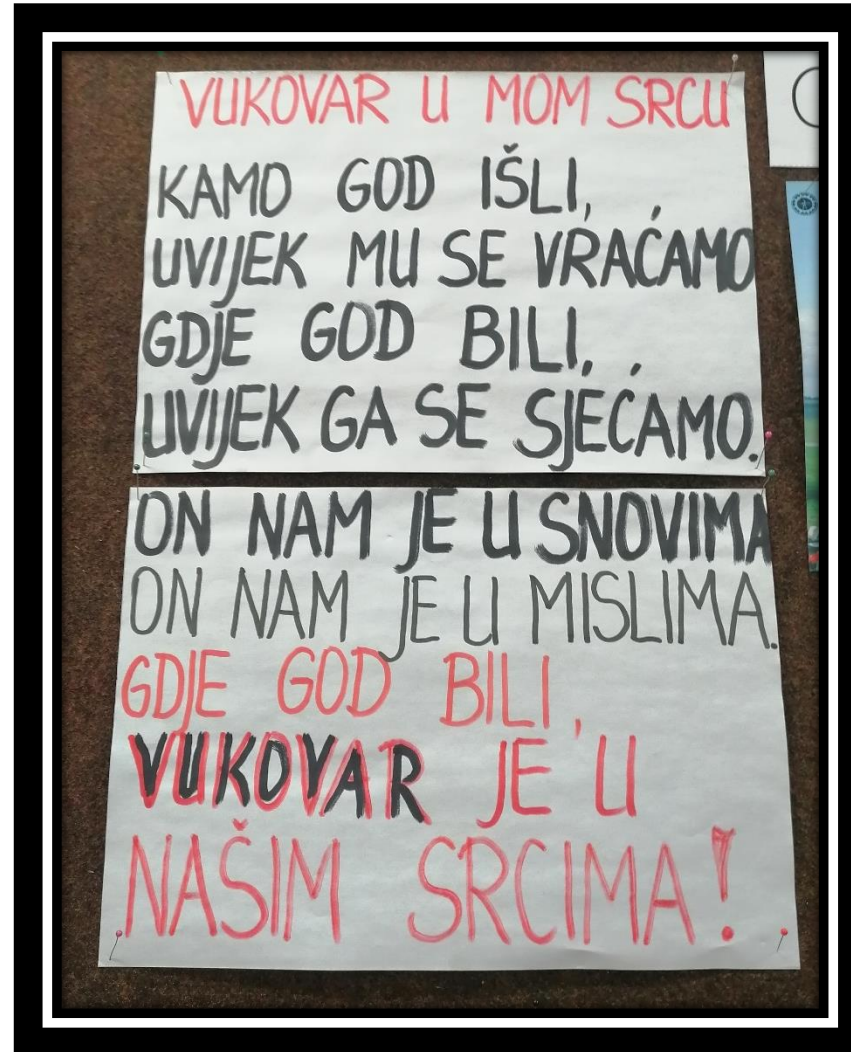 VUKOVAR U MOM SRCU
KAMO GOD IŠLI,
UVIJEK MU SE VRAĆAMO
GDJE GOD BILI,
UVIJEK GA SE SJEĆAMO.
ON NAM JE U SNOVIMA
ON NAM JE U MISLIMA.
GDJE GOD BILI,
VUKOVAR JE U
NAŠIM SRCIMA!